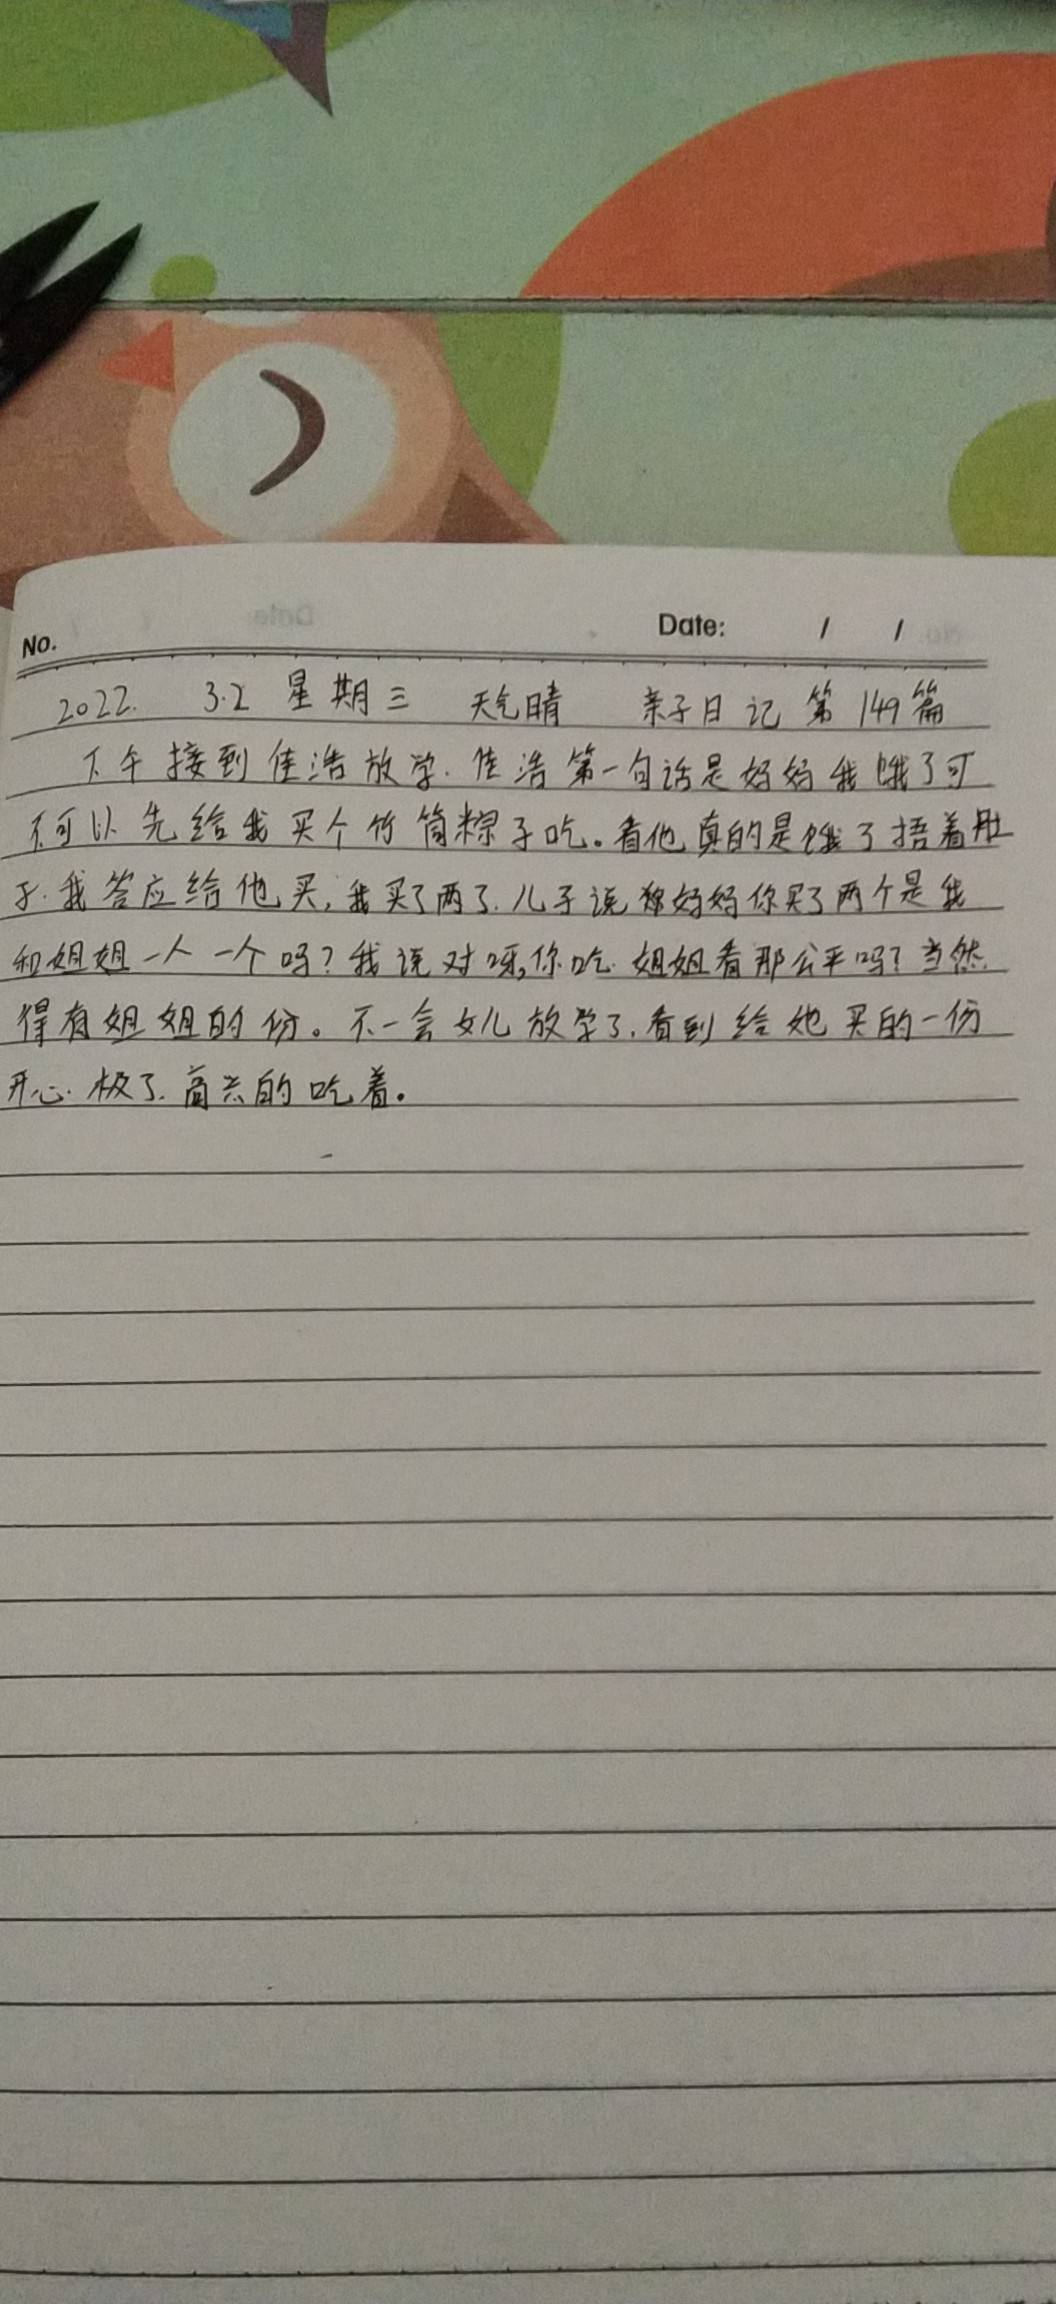 No.
Date: / /
2022. 3.2 星期三 天气晴 亲子日记第149篇
下午接到佳浩放学.佳浩第一句话是妈妈我饿了可
不可以先给我买个竹筒粽子吃。看他真的是饿了捂着肚
子.我答应给他买,我买了两了.儿子说妈妈你买了两个是我
和姐姐一人一个吗?我说对呀,你吃.姐姐看那公平吗?当然
得有姐姐的份。不一会女儿放学了.看到给她买的一份
开心.极了.高兴的吃着。